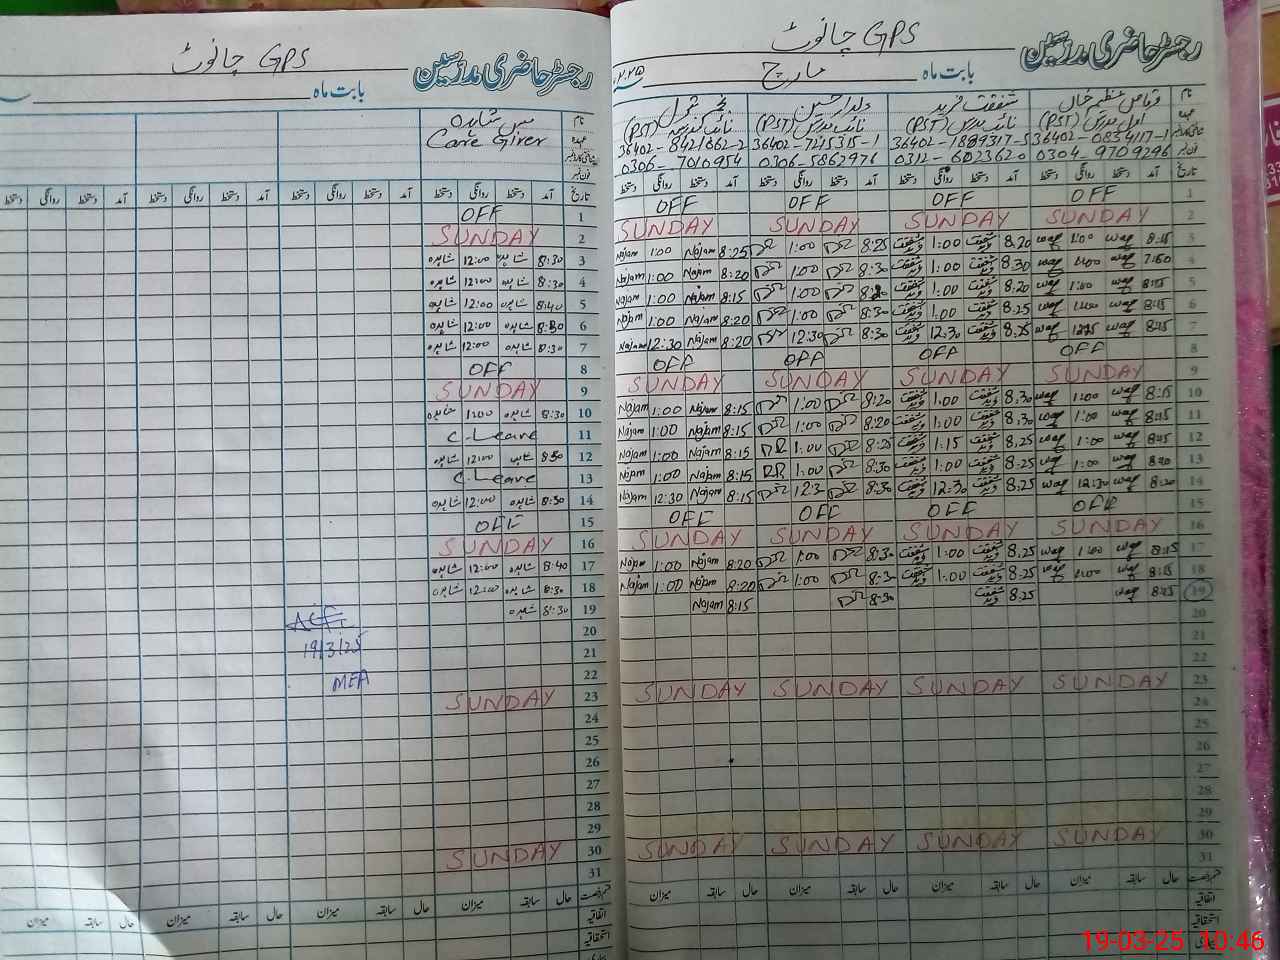 GPS چانوٹ
رجسٹر حاضری مدرسین
بابت ماہ مارچ
نام وقاص عظیم خان شفقت فرید دلدار حسین
(PST) نائب مدرس (PST) نائب مدرس (PST) (PST)
36402-0834117-1 36402-1889317-5 36402-7245315-1 36402-8421662-2
0304-9709296 0312-6023620 0306-5862976 0306-7010954
تاریخ آمد دستخط روانگی دستخط آمد دستخط روانگی دستخط آمد دستخط روانگی دستخط آمد دستخط روانگی دستخط
1 OFF OFF OFF OFF
2 SUNDAY SUNDAY SUNDAY SUNDAY
3 8:15 waq 1:00 waq 8.20 شفقت فرید 1:00 شفقت فرید 8:25 1:00 8:25 Najam 1:00 Najam
4 waq waq 8.30 شفقت فرید 1:00 شفقت فرید 8:30 1:00 8:20 Najam 1:00 Najam
5 8:15 waq 1:00 waq 8.20 شفقت فرید 1:00 شفقت فرید 1:00 8:15 Najam 1:00 Najam
6 8:15 waq waq 8.25 شفقت فرید 1:00 شفقت فرید 8:30 1:00 8:20 Najam 1:00 Najam
7 8:15 waq waq 8.25 شفقت فرید 12:30 شفقت فرید 8:30 12:30 8:20 Najam 12:30 Najam
8 OFF OFF OFF OFF
9 SUNDAY SUNDAY SUNDAY SUNDAY
10 8:15 waq 1:00 waq 8.30 شفقت فرید 1:00 شفقت فرید 8:20 1:00 8:15 Najam 1:00 Najam
11 8:15 waq 1:00 waq 8.30 شفقت فرید 1:00 شفقت فرید 8:20 1:00 8:15 Najam 1:00 Najam
12 waq 1:00 waq 8.25 شفقت فرید 1:15 شفقت فرید 8:25 1:00 8:15 Najam 1:00 Najam
13 waq 1:00 waq 8.25 شفقت فرید 1:00 شفقت فرید 8:30 1:00 8:15 Najam 1:00 Najam
14 8:20 waq 12:30 waq 8.25 شفقت فرید 12:30 شفقت فرید 8:30 12:3 8:15 Najam 12:30 Najam
15 OFF OFF OFF OFF
16 SUNDAY SUNDAY SUNDAY SUNDAY
17 8:15 waq 1:00 waq 8.25 شفقت فرید 1:00 شفقت فرید 8:30 1:00 8:20 Najam 1:00 Najam
18 8:15 waq 1:00 waq 8.25 شفقت فرید 1:00 شفقت فرید 8:3 1:00 8:20 Najam 1:00 Najam
19 8:15 waq 8.25 شفقت فرید 8:30 8:15 Najam
20
21
22
23 SUNDAY SUNDAY SUNDAY SUNDAY
24
25
26
27
28
29
30 SUNDAY SUNDAY SUNDAY SUNDAY
31
حال سابقہ میزان حال سابقہ میزان حال سابقہ میزان حال سابقہ میزان
اتفاقیہ
استحقاقیہ
19-03-25 10:46
GPS چانوٹ
رجسٹر حاضری مدرسین
بابت ماہ
نام مس شاہدہ
عہدہ Care Giver
تاریخ آمد دستخط روانگی دستخط آمد دستخط روانگی دستخط آمد دستخط روانگی دستخط آمد دستخط روانگی دستخط
1 OFF
2 SUNDAY
3 8:30 شاہدہ 12:00 شاہدہ
4 8:30 شاہدہ 12:00 شاہدہ
5 8:40 شاہدہ 12:00 شاہدہ
6 8:30 شاہدہ 12:00 شاہدہ
7 8:30 شاہدہ 12:00 شاہدہ
8 OFF
9 SUNDAY
10 8:30 شاہدہ شاہدہ
11 C.Leave
12 8:30 شاہدہ 12:00 شاہدہ
13 C.Leave
14 8:30 شاہدہ 12:00 شاہدہ
15 OFF
16 SUNDAY
17 8:40 شاہدہ 12:00 شاہدہ
18 8:30 شاہدہ 12:00 شاہدہ
19 8:30 شاہدہ
20
21 19/3/25
22 MEA
23 SUNDAY
24
25
26
27
28
29
30 SUNDAY
31
حال سابقہ میزان حال سابقہ میزان حال سابقہ میزان حال سابقہ میزان
اتفاقیہ
استحقاقیہ